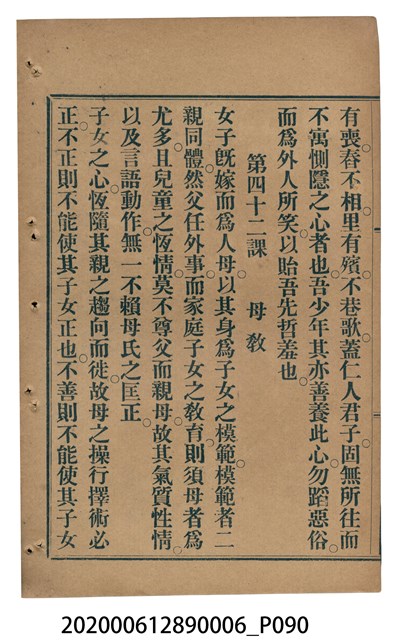 有喪舂不相里有殯不巷歌蓋仁人君子固無所往而
不寓惻隱之心者也吾少年其亦善養此心勿蹈惡俗
而爲外人所笑以貽吾先哲羞也
第四十二課 母教
女子旣嫁而爲人母以其身爲子女之模範模範者二
親同體然父任外事而家庭子女之教育則須母者爲
尤多且兒童之恆情莫不尊父而親母故其氣質性情
以及言語動作無一不賴母氏之匡正
子女之心恆隨其親之趨向而徙故母之操行擇術必
正不正則不能使其子女正也不善則不能使其子女
202000612890006_P090